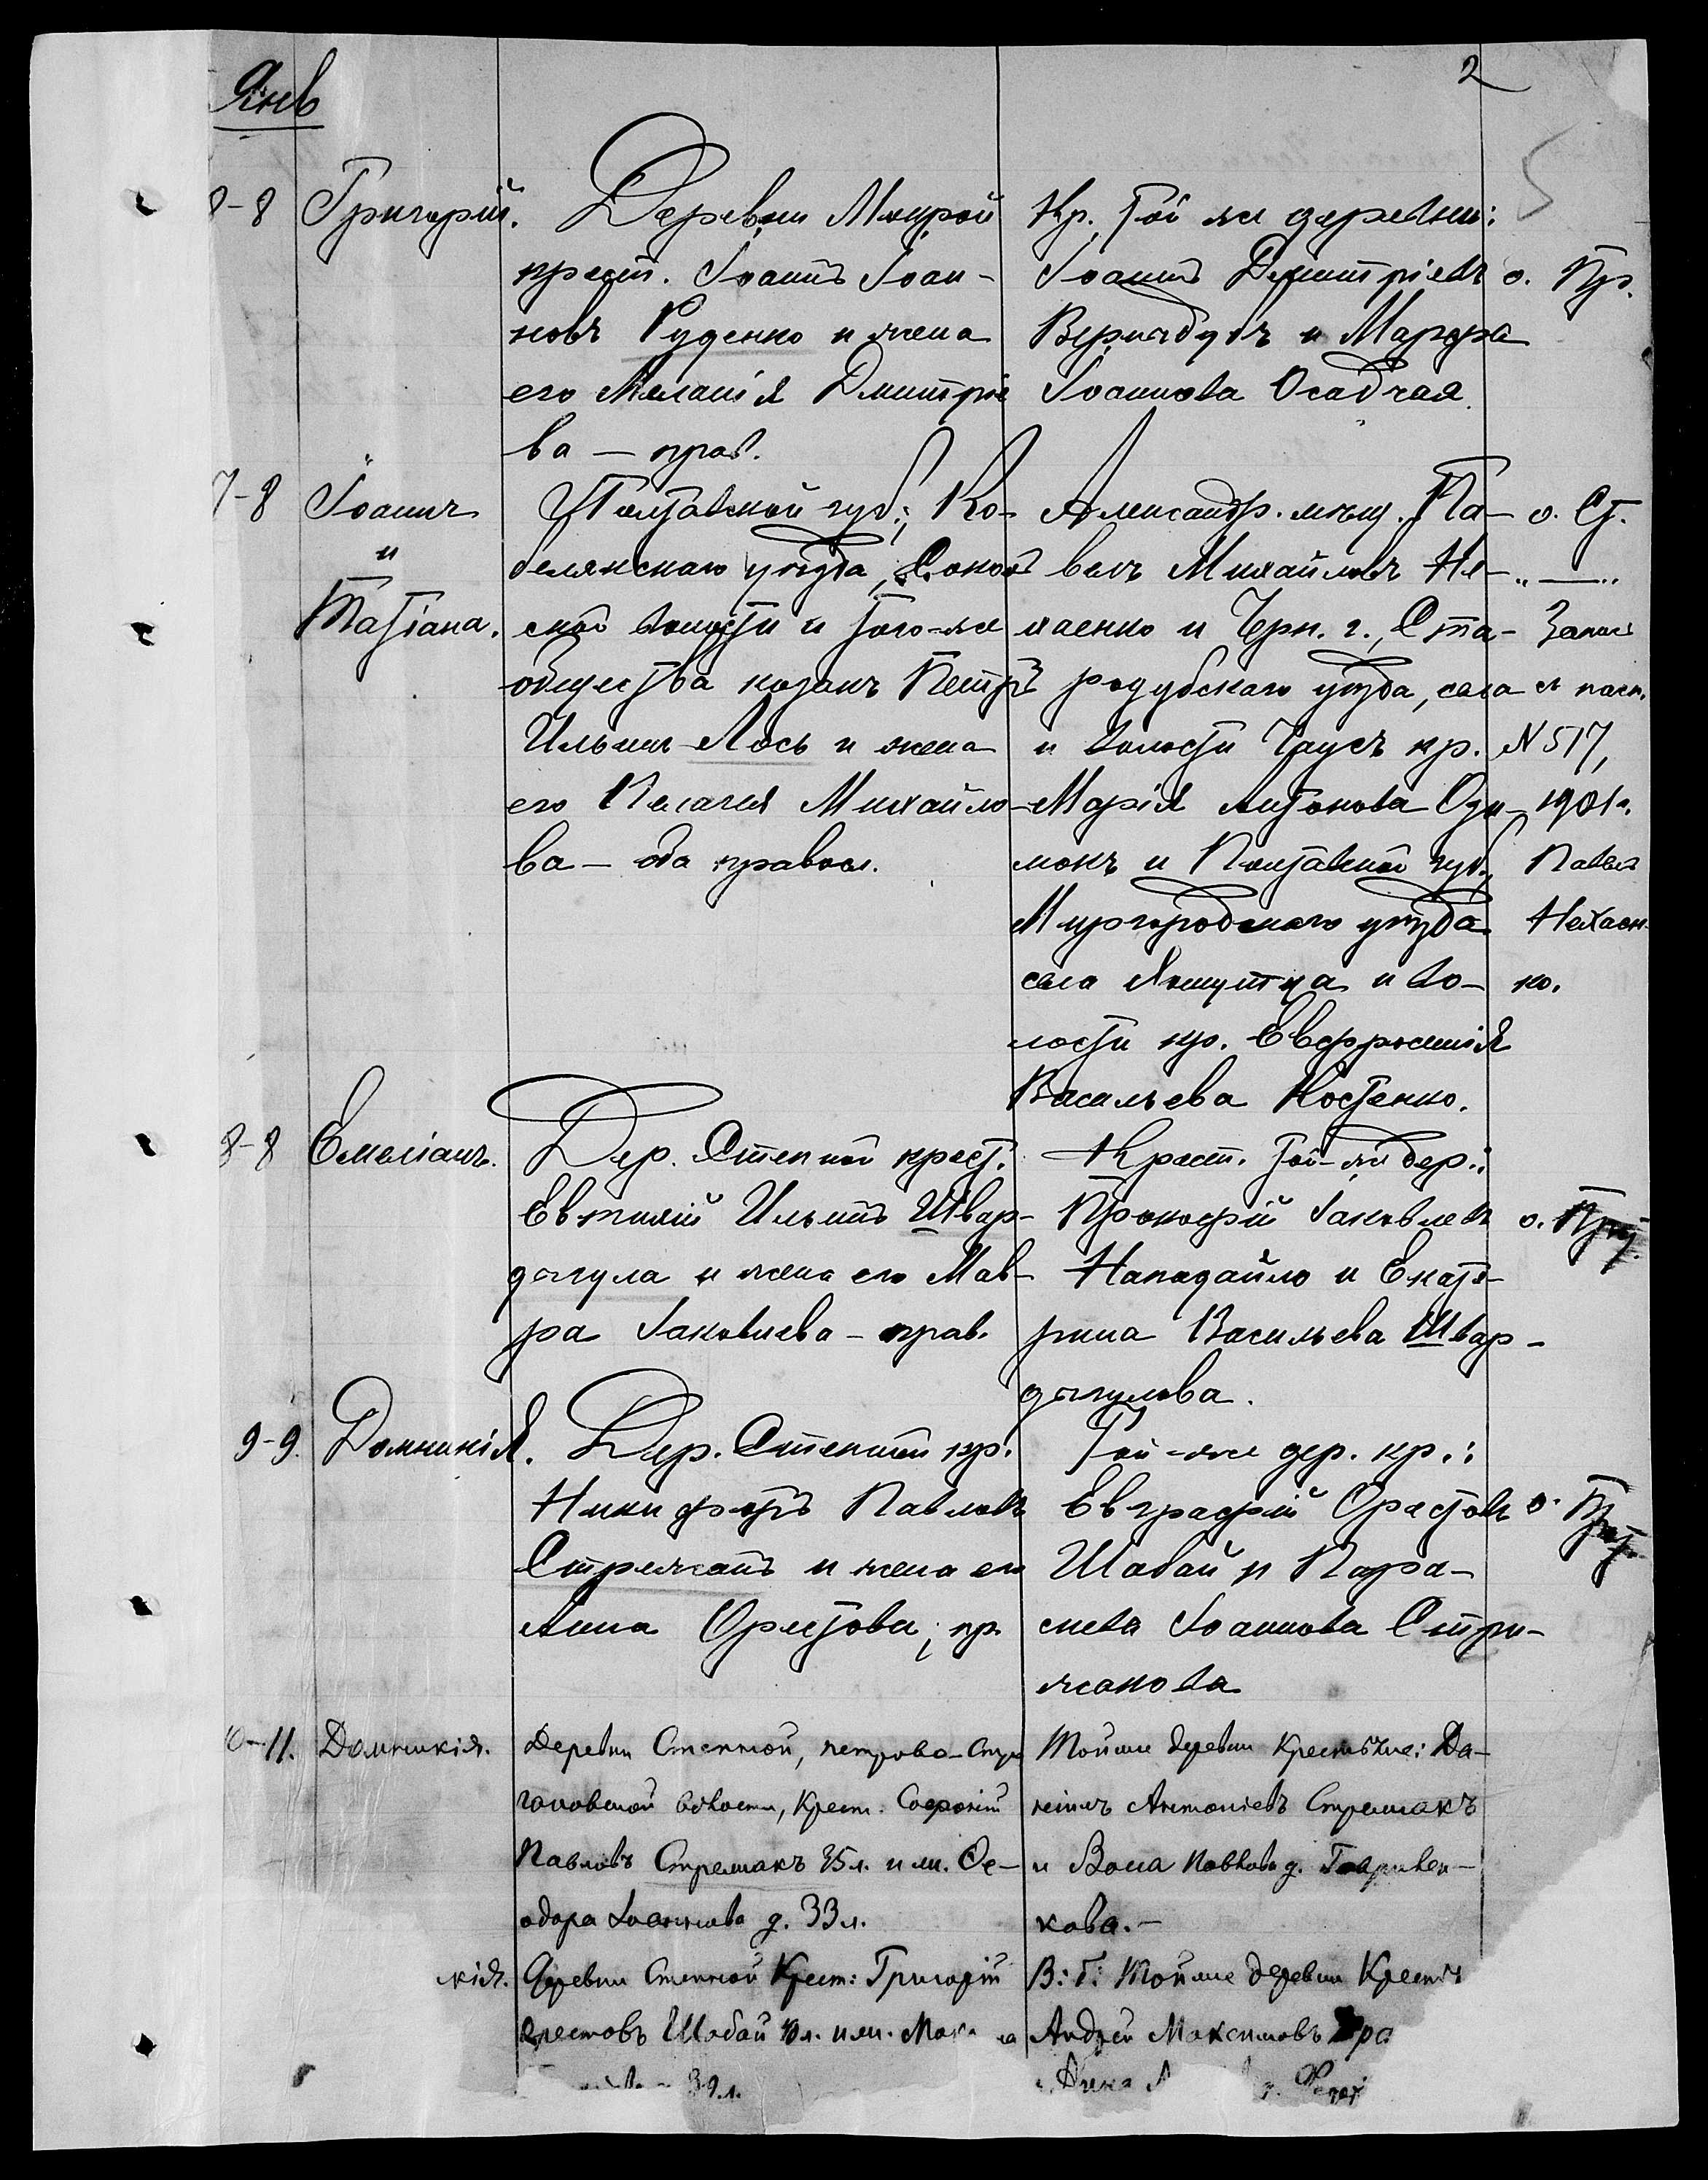 Янв
2
5
8-8 Григорій. Деревни Мокрой
крест. Іоаннъ Іоан-
новъ Руденко и жена
его Меланія Дмитріе
ва — прав.
Кр. той же деревни:
Іоаннъ Димитріевъ
Вернбубъ и Марфа
Іоаннова Осадчая
о. Пр.
7-8 Іоаннъ
и
Татіана.
Полтавской губ., Ко-
белякскаго уѣзда, Сокол
ской волости и того-же
общества козакъ Петръ
Ильинъ Лось и жена
его Пелагея Михайло
ва — оба правосл.
Александр. мѣщ. Па-
велъ Михайловъ Не-
хаенко и Черн. г., Ста-
родубскаго уѣзда, села
и волости Чаусъ кр.
Марія Антонова Оди-
нокъ и Полтавской губ.,
Миргородскаго уѣзда
села Хомутца и во-
лости кр. Евфросинія
Васильева Костенко.
о. Ст.
„ — „
Запис.
съ пасп.
№ 517,
1901 г.
Павла
Нехаен-
ко.
8-8 Емеліанъ. Дер. Степной крест.
Евтихій Ильинъ Швар-
дыгула и жена его Мав-
ра Іаковлева — прав.
Крест. той-же дер.:
Прокофій Іаковлевъ
Нападайло и Екате-
рина Васильева Швар-
дыгулова.
о. Прот.
9-9. Домникія. Дер. Степной кр.
Никифоръ Павловъ
Стрижакъ и жена его
Анна Орестова; пр.
Той-же дер. кр.:
Евграфій Орестовъ
Шабай и Пара-
скева Іоаннова Стри-
жакова
о. Прот.
10-11. Домникія. Деревни Степной, петрово-Сви
гоновской волости, Крест. Софроній
Павловъ Стрижакъ 35 л. и ж. Ѳе-
одора Іоаннова д. 33 л.
Той же деревни Крестьяне: Да-
ніилъ Антоніевъ Стрижакъ
и Васса Павлова д. Гаврилен-
кова.—
кія. Деревни Степной Крест: Григорій
Орестовъ Шабай 40 л. и ж.
39 л.
В: б: Той же деревни Крестья
Андрей Максимовъ
Анна